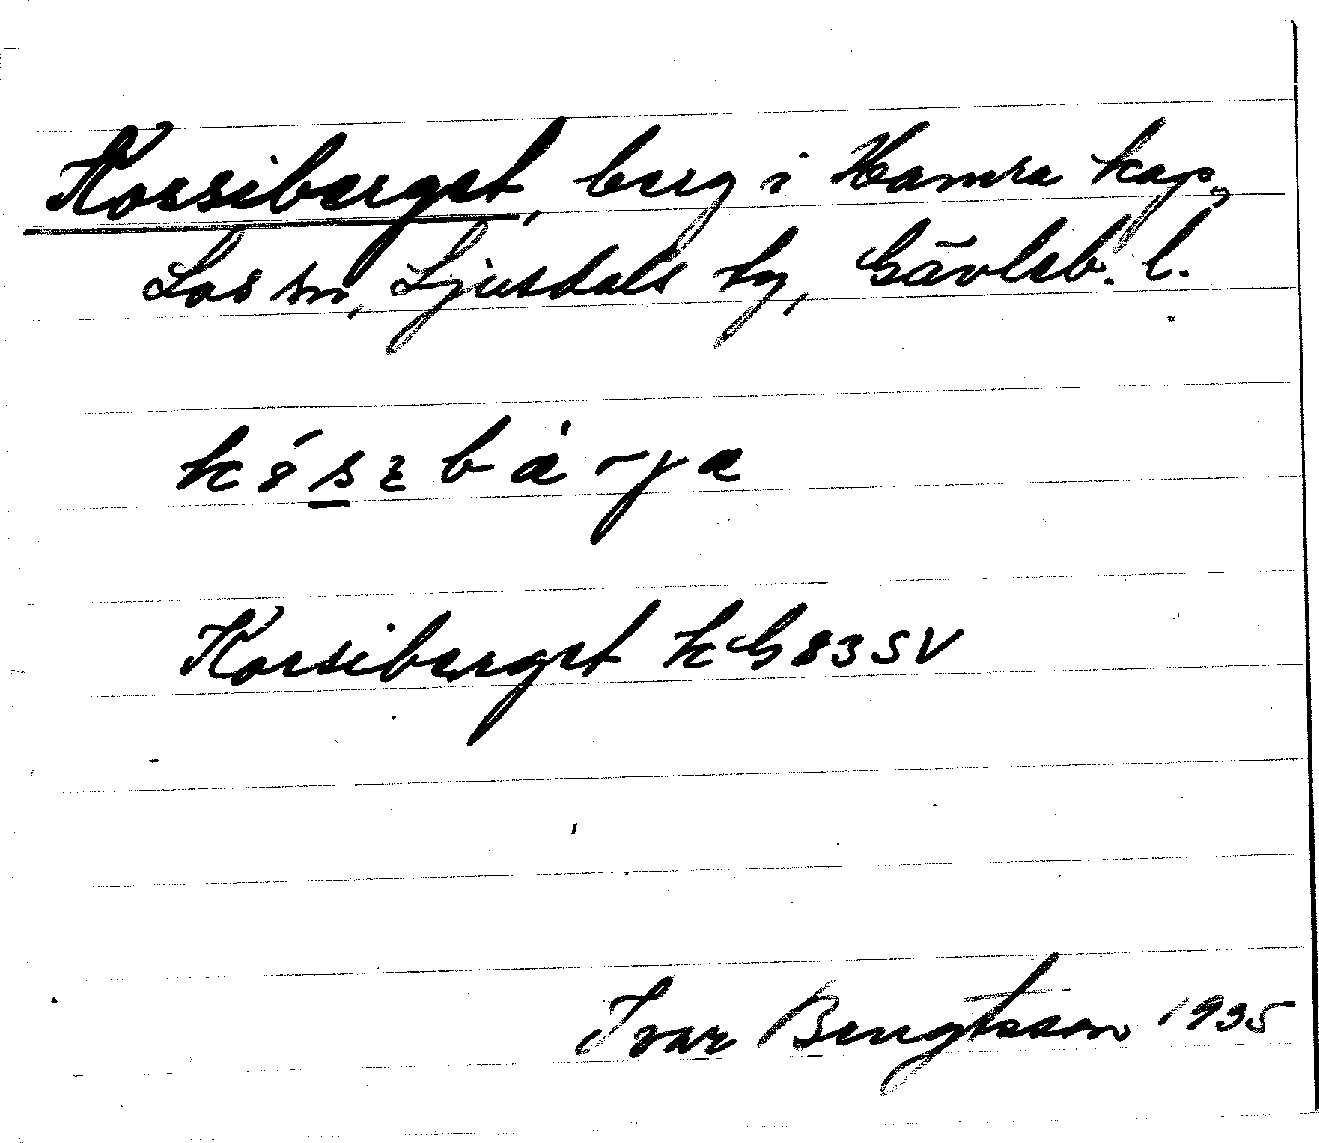 Korsiberget, berg i Hamra kap.,
Los sn, Ljusdals tg, Gävleb. l.
Korsiberget k G 83 SV
Ivar Bengtsson 1935